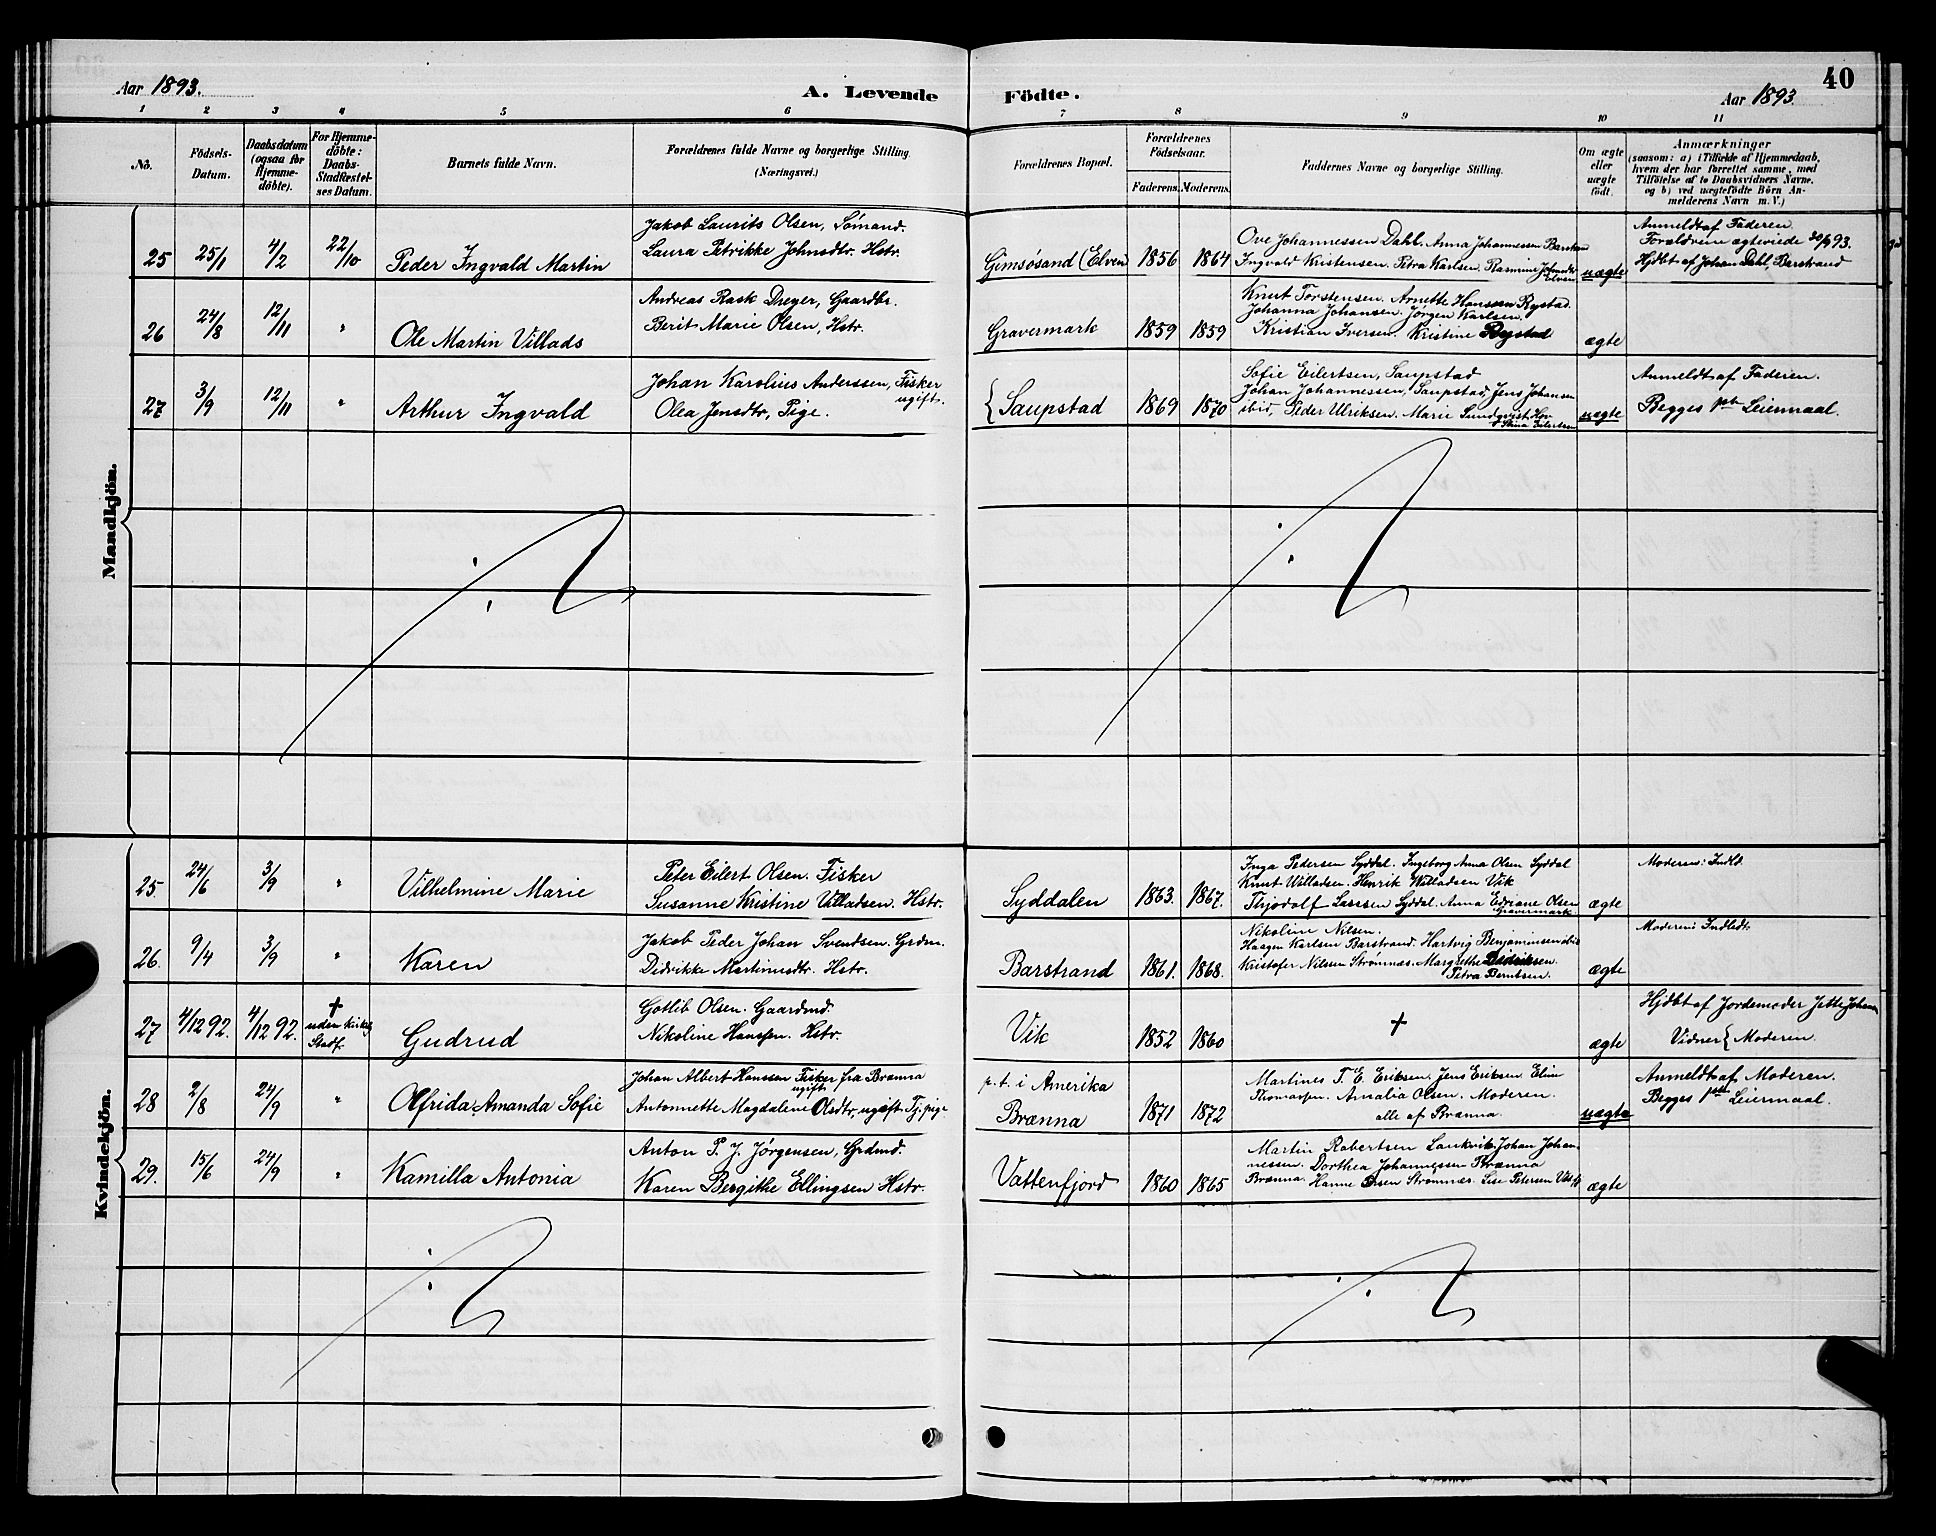 40
Aar 1893. A. Levende Födte. Aar 1893.
1 2 3 4 5 6 7 8 9 10 11
No. Födsels-Datum. Daabsdatum (ogsaa for Hjemme-döbte). For Hjemme-döbte: Daabs-Stadfæstel-ses Datum. Barnets fulde Navn. Forældrenes fulde Navne og borgerlige Stilling (Næringsvei.) Forældrenes Bopæl. Forældrenes Födselsaar. Faderens. Moderens. Faddernes Navne og borgerlige Stilling. Om ægte eller uægte födt. Anmærkninger (saasom: a) i Tilfælde af Hjemmedaab, hvem der har forrettet samme, med Tilföielse af to Daabsvidners Navne, og b) ved uægtefödte Börn An-melderens Navn m. V.)
Mandkjön.
25 25/1 4/2 22/10 Peder Ingvald Martin
Jakob Laurits Olsen, Sømand.
Laura Petrikke Johnsdtr. Hstr.
Gimsøsand (Elven 1856 1864
Ove Johannessen Dahl. Anna Johannessen
Ingvald Kristensen. Petra Karlsen. Rasmine
uægte
Anmeldt af Faderen.
Forældrene ægteviede 93.
Hjdbt af Johan Dahl, Barstrand
26 24/8 12/11 " Ole Martin Villads
Andreas Rask Dreyer, Gaardbr.
Berit Marie Olsen, Hstr.
Gravermark 1859 1859
Knut Torstensen. Arnette Hanssen Rystad.
Johanna Johansen. Jørgen Karlsen.
Kristian Iversen. Kristine Rystad
ægte
27 3/9 12/11 " Arthur Ingvald
Johan Karolius Anderssen, Fisker
ugift.
Olea Jensdtr, Pige.
{ Saupstad 1869 1870
Sofie Eilertsen, Saupstad
Johan Johannessen, Saupstad, Jens Johansen
ibid, Peder Ulriksen. Marie Sundqvist Hov
Stina Eilertsen
uægte
Anmeldt af Faderen.
Begges 1ste Leiermaal.
Kvindekjön.
25. 24/6 3/9 " Vilhelmine Marie
Peter Eilert Olsen. Fisker
Susanne Kristine Villadsen. Hstr.
Syddalen 1863. 1867.
Inga Pedersen Syddal. Ingeborg Anna Olsen Syddal
Knut Willadsen. Henrik Willadsen Vik
Thjodolf Larssen Syddal. Anna Edriane Olsen
Gravermark
ægte
Moderens: Indld.
26. 9/4 3/9 " Karen
Jakob Peder Johan Svendsen. Grdm.
Didrikke Martinusdtr. Hstr.
Barstrand 1861. 1868.
Nikoline Nilsen.
Haagen Karlsen Barstrand. Hartvig Benjaminsen ibid
Kristofer Nilsen Strømnæs. Margrethe Didriksen.
Petra Berntsen.
ægte
Moderens Indledt.
27 4/12 92. 4/12 92. †
uden Kirkelig
Stadf.
Gudrud
Gotlib Olsen. Gaardmd.
Nikoline Hanssen. Hstr.
Vik 1852 1860 † ægte
Hjdbt af Jordemoder Jette Johan
Vidner { Moderen.
28 2/8 24/9 " Olfrida Amanda Sofie
Johan Albert Hanssen Fisker fra Brænna
ugift
Antonnette Magdalene Olsdtr, ugift. Tj. pige
p. t. i Amerika
Brænna 1871 1872
Martines T. E. Eriksen. Jens Eriksen. Elin
Thomassen. Amalia Olsen. Moderen.
alle af Brænna.
uægte
Anmeldt af Moderen.
Begges 1ste Leiermaal.
29. 15/6 24/9 " Kamilla Antonia
Anton P. J. Jørgensen, Grdmd.
Karen Bergithe Ellingsen Hstr.
Vattenfjord 1860 1865
Martin Robertsen Laukvik. Johan Johan-
nessen. Dorthea Johannessen Brænna
Brænna. Hanne Olsen Strømnæs. Lise Petersen
ægte